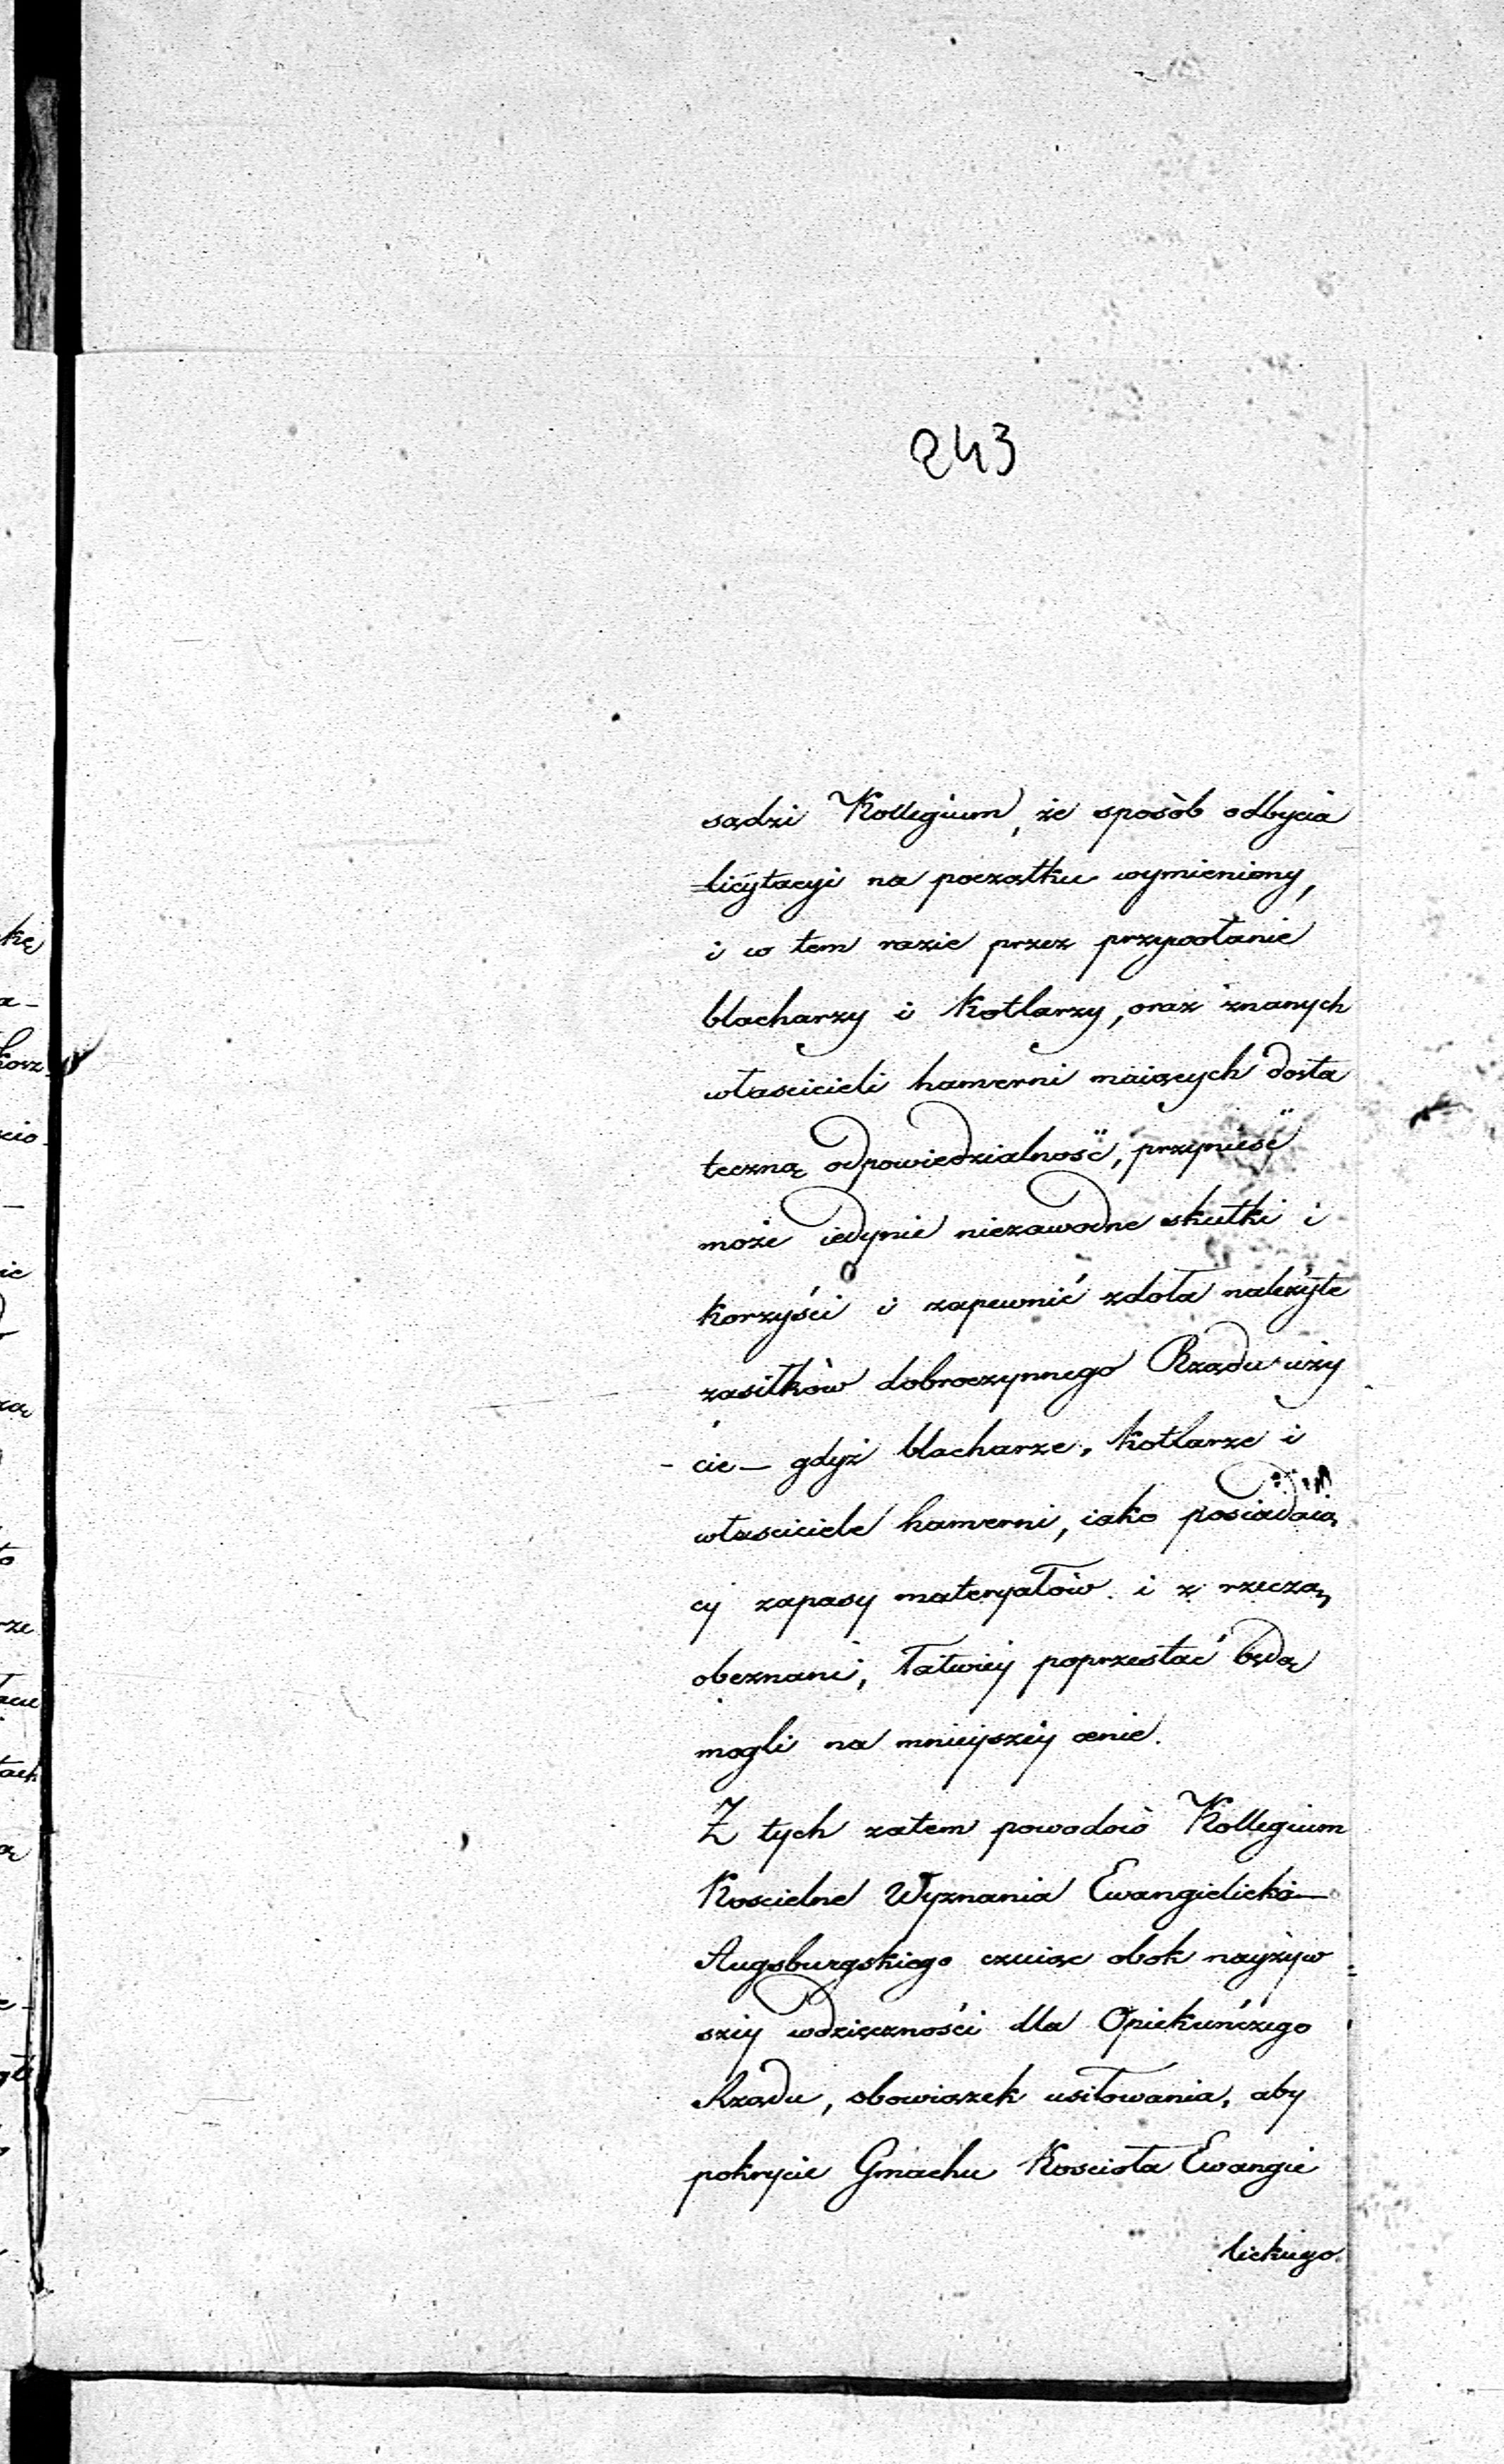 243
sądzi Kollegium, że sposób odbycia
licytacyi na początku wymieniony,
i w tem razie przez przywołanie
blacharzy i Kotlarzy, oraz znanych
właścicieli hamerni maiących dosta
teczną odpowiedzialność, przynieść
może iedynie niezawodne skutki i
korzyści i zapewnić zdoła należyte
zasiłków dobroczynnego Rządu uży
- cie — gdyż blacharze, kotlarze i
właściciele hamerni, iako posiadaią
cy zapasy materyałów i z rzeczą
obeznani, łatwiey poprzestać będą
mogli na mnieyszey cenie.
Z tych zatem powodów Kollegium
Kościelne Wyznania Ewangielicko —
Augsburgskiego czuiąc obok nayżyw
szey wdzięczności dla Opiekuńczego
Rządu, obowiązek usiłowania, aby
pokrycie Gmachu Kościoła Ewangie
lickiego